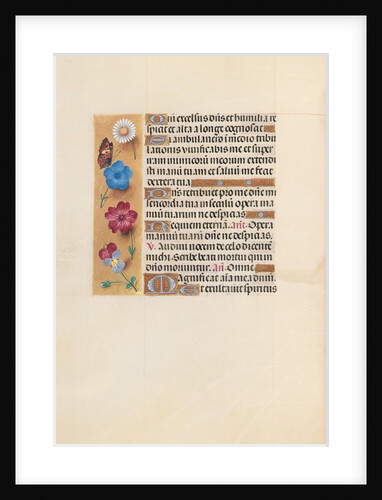 Qm̄ excelsus dn̄s et humilia re
spicit et alta a longe cognoscit
Si ambulavero in medio tribu
lationis vivificabis me et super
iram inimicorū meorum extendi
sti manū tuam et salvū me fecit
dextera tua
Dn̄s retribuet pro me dn̄e mi
sericordia tua in seculū opera ma
nuū tuarum ne despicias
Requiem eternā. an̄t. Opera
manuū tuarū dn̄e ne despicias.
V. Audivi vocem de celo dicentē
michi Scribe beati mortui qui in
dn̄o moriuntur. an̄. Omne
Magnificat aīa mea dn̄m.
Et exultavit spiritus